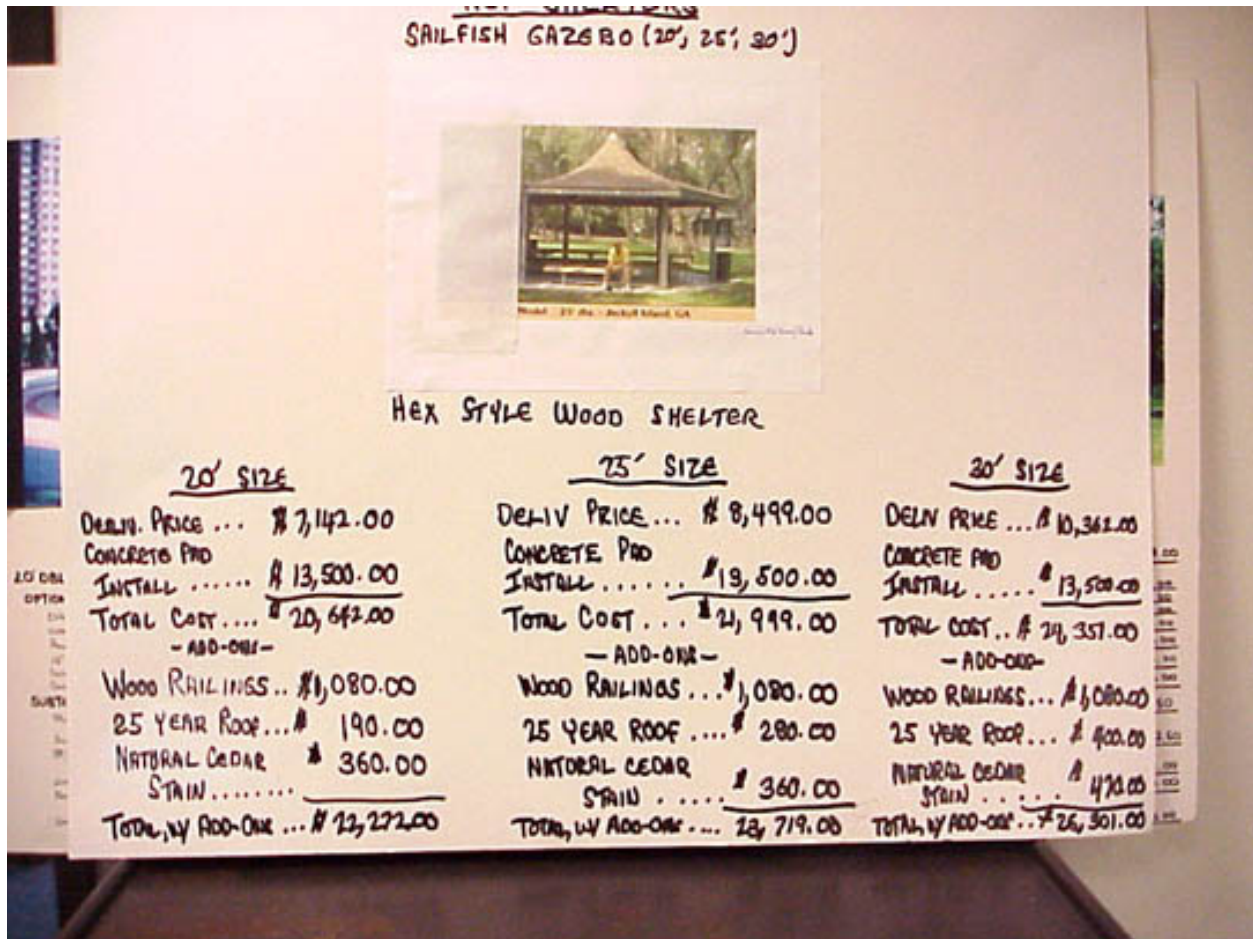 SAILFISH GAZEBO (20', 25', 30')
Model 25' dia. - Jeckyll Island, GA
HEX STYLE WOOD SHELTER
20' SIZE
DELIV. PRICE ... $ 7,142.00
CONCRETE PAD
INSTALL ...... $ 13,500.00
TOTAL COST .... $ 20,642.00
- ADD-ONS -
WOOD RAILINGS .. $1,080.00
25 YEAR ROOF ... $ 190.00
NATURAL CEDAR $ 360.00
STAIN ........
TOTAL, W/ ADD-ONS ... $ 22,272.00
25' SIZE
DELIV PRICE ... $ 8,499.00
CONCRETE PAD
INSTALL ...... $13,500.00
TOTAL COST .... $ 21,999.00
- ADD-ONS -
WOOD RAILINGS ... $1,080.00
25 YEAR ROOF .... $ 280.00
NATURAL CEDAR
STAIN ...... $ 360.00
TOTAL, W/ ADD-ONS .... 23,719.00
30' SIZE
DELIV PRICE ... $ 10,362.00
CONCRETE PAD
INSTALL ..... $ 13,500.00
TOTAL COST .. $ 24,351.00
- ADD-ONS -
WOOD RAILINGS ... $1,080.00
25 YEAR ROOF ... $ 400.00
NATURAL CEDAR $
STAIN ...... 470.00
TOTAL, W/ ADD-ONS .. $ 26,301.00